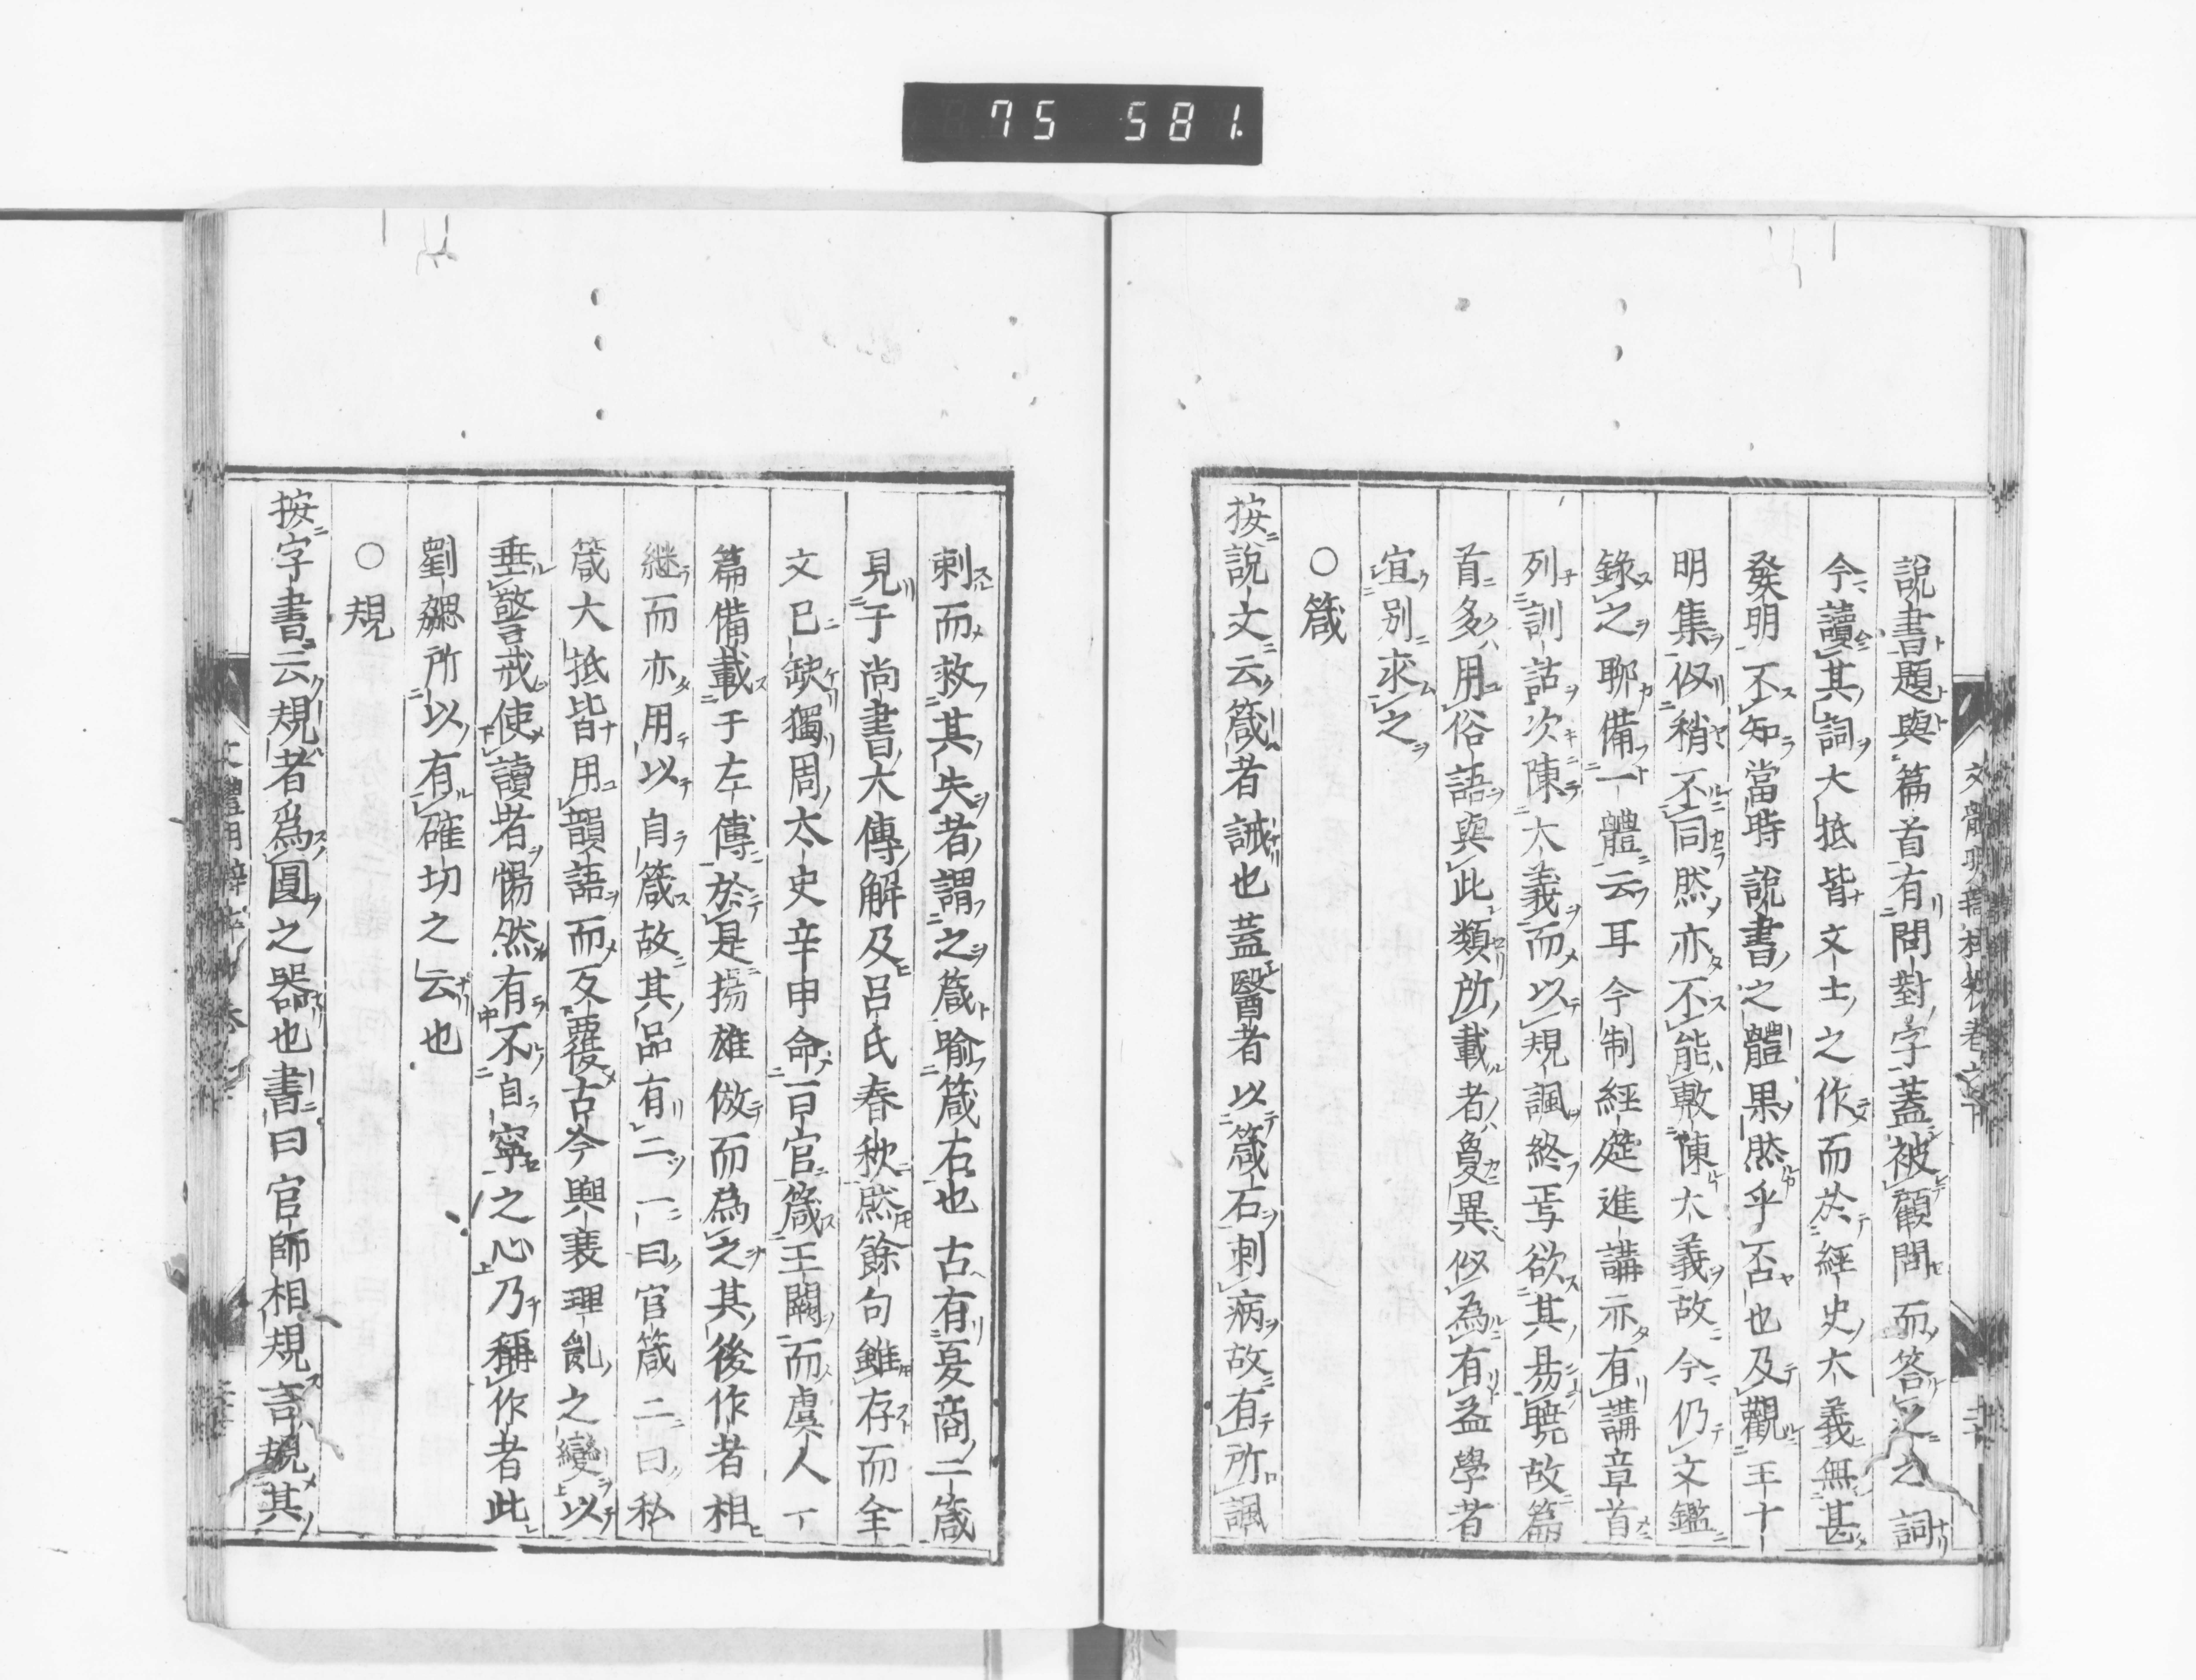 75 581.
説書題與篇首有問對字蓋被顧問而答之之詞
今讀其詞大抵皆文士之作而於經史大義無甚
發明不知當時説書之體果然乎否也及觀王十
明集似稍不同然亦不能敷陳大義故今仍文鑑
錄之聊備一體云耳今制經筵進講亦有講章首
列訓詁次陳大義而以規諷終焉欲其易曉故篇
首多用俗語與此類所載者夐異似為有益學者
宜別求之
○箴
按説文云箴者誡也蓋醫者以箴石刺病故有所諷
刺而救其失者謂之箴喻箴石也古有夏商二箴
見于尚書大傳解及呂氏春秋然餘句雖存而全
文已缺獨周太史辛甲命百官箴王闕而虞人一
篇備載于左傳於是揚雄倣而為之其後作者相
継而亦用以自箴故其品有二一曰官箴二曰私
箴大抵皆用韻語而反覆古今興衰理亂之變以
垂警戒使讀者惕然有不自寧之心乃稱作者此
劉勰所以有確切之云也
○規
按字書云規者為圓之器也書曰官師相規言規其